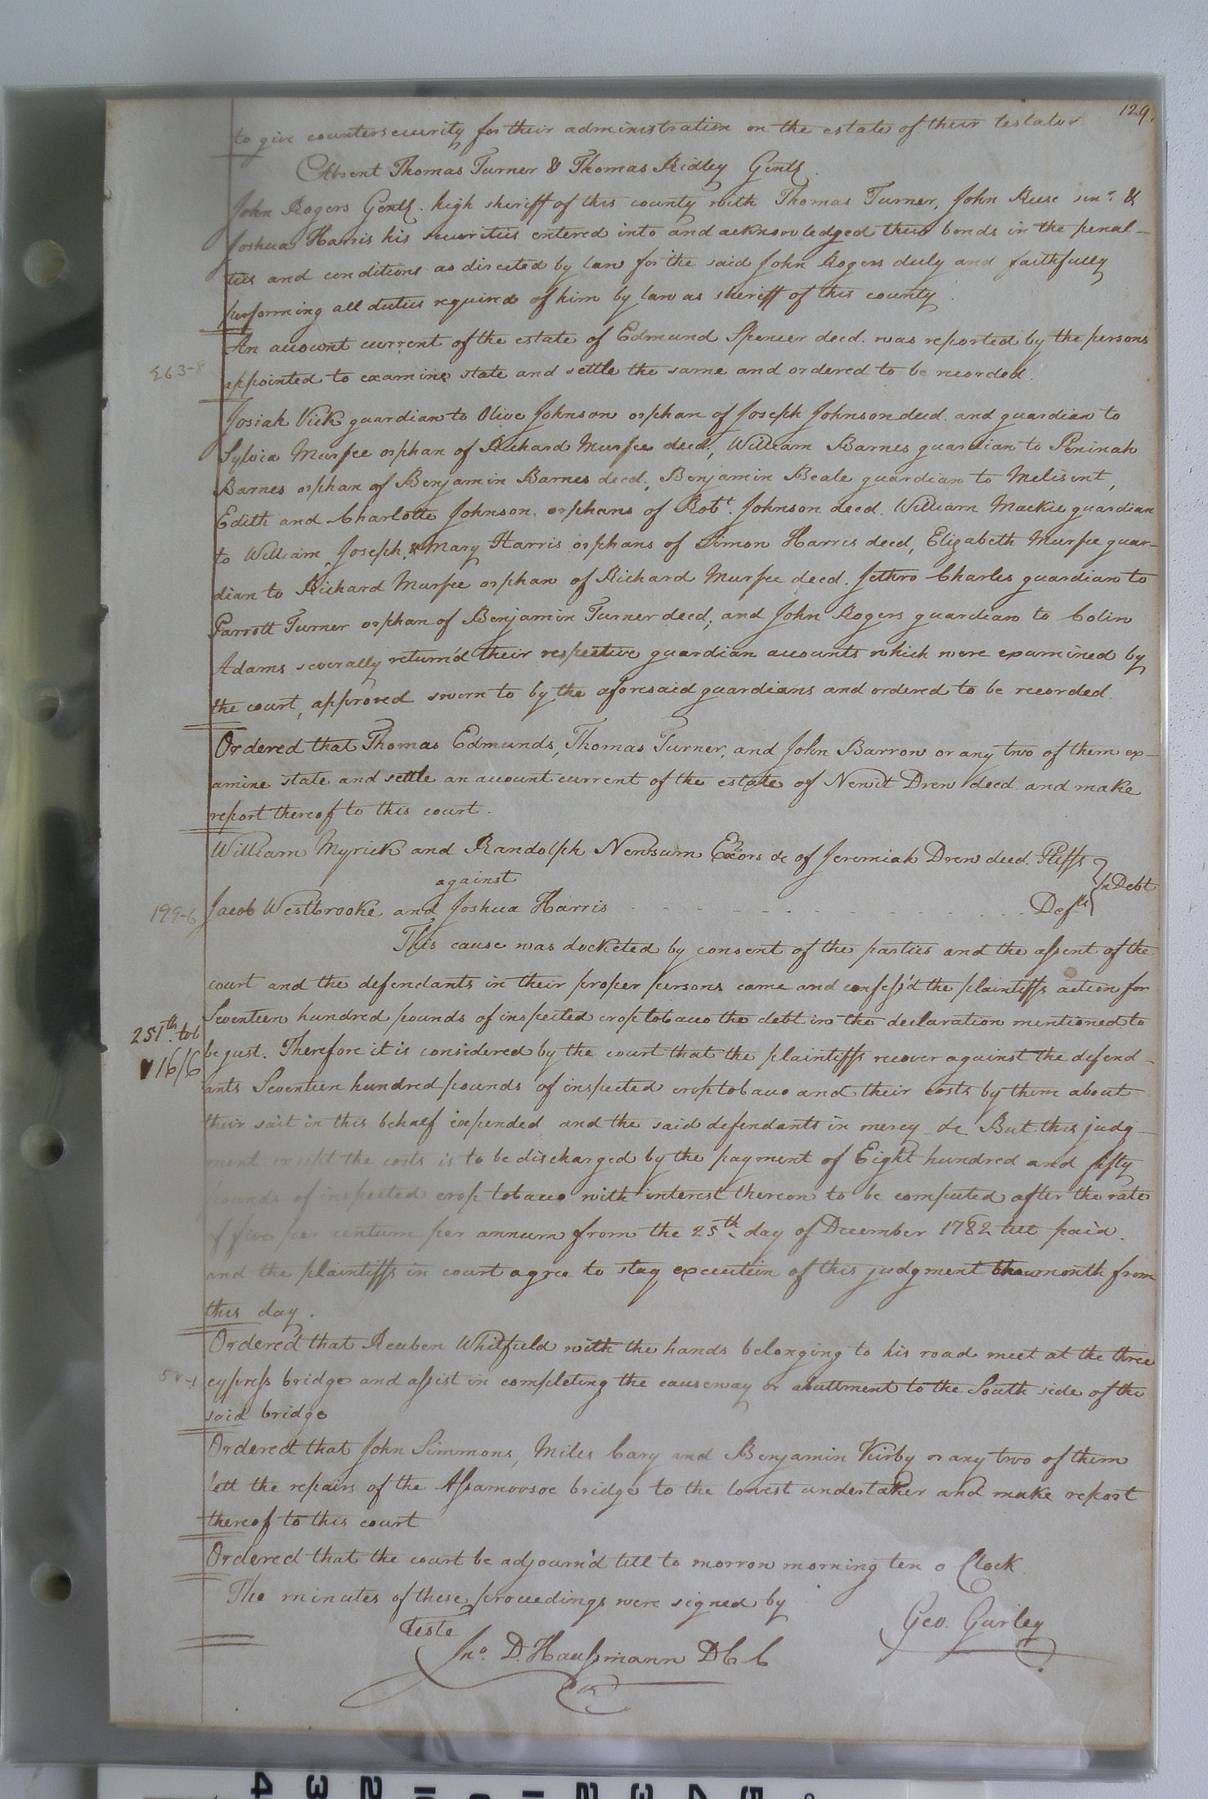 129.
to give counter security for their administration on the estate of their testator
Absent Thomas Turner & Thomas Ridley Gentl.
John Rogers Gentl. high sheriff of this county with Thomas Turner, John Reese senr. &
Joshua Harris his securities entered into and acknowledged their bonds in the penal-
ties and conditions as directed by law for the said John Rogers duly and faithfully
performing all duties required of him by law as sheriff of this county.
An account current of the estate of Edmund Spencer deed. was reported by the persons
263-8 appointed to examine state and settle the same and ordered to be recorded.
Josiah Vick guardian to Olive Johnson orphan of Joseph Johnson deed. and guardian to
Sylvia Murfee orphan of Richard Murfee deed, William Barnes guardian to Peninah
Barnes orphan of Benjamin Barnes deed, Benjamin Beale guardian to Melisent,
Edith and Charlotte Johnson orphans of Robt. Johnson deed. William Mackie guardian
to William, Joseph, & Mary Harris orphans of Simon Harris deed, Elizabeth Murfee guar-
dian to Richard Murfee orphan of Richard Murfee deed. Jethro Charles guardian to
Parrott Turner orphan of Benjamin Turner deed, and John Rogers guardian to Colin
Adams severally return'd their respective guardian accounts which were examined by
the court, approved sworn to by the aforesaid guardians and ordered to be recorded.
Ordered that Thomas Edmunds, Thomas Turner, and John Barrow or any two of them ex-
amine state and settle an account current of the estate of Newit Drew deed. and make
report thereof to this court.
William Myrick and Randolph Newsum Exors &c of Jeremiah Drew deed. Pltffs
against } In Debt
199-6 Jacob Westbrooke and Joshua Harris Defts
This cause was docketed by consent of the parties and the assent of the
court and the defendants in their proper persons came and confess'd the plaintiffs action for
Seventeen hundred pounds of inspected crop tobacco the debt in the declaration mentioned to
251th. tob be just. Therefore it is considered by the court that the plaintiffs recover against the defend-
16/6 ants Seventeen hundred pounds of inspected crop tobacco and their costs by them about
their suit in this behalf expended and the said defendants in mercy &c But this judg-
ment except the costs is to be discharged by the payment of Eight hundred and fifty
pounds of inspected crop tobacco with interest thereon to be computed after the rate
of five per centum per annum from the 25th day of December 1782 till paid.
and the plaintiffs in court agree to stay execution of this judgment month from
this day.
Ordered that Reuben Whitfield with the hands belonging to his road meet at the three
cypress bridge and assist in completing the causeway or abuttment to the South side of the
said bridge
Ordered that John Simmons, Miles Cary and Benjamin Kirby or any two of them
lett the repairs of the Assamoosoc bridge to the lowest undertaker and make report
thereof to this court
Ordered that the court be adjourn'd till to morrow morning ten o Clock
The minutes of these proceedings were signed by
Geo. Gurley
Teste
Jno. D. Haussmann D C C